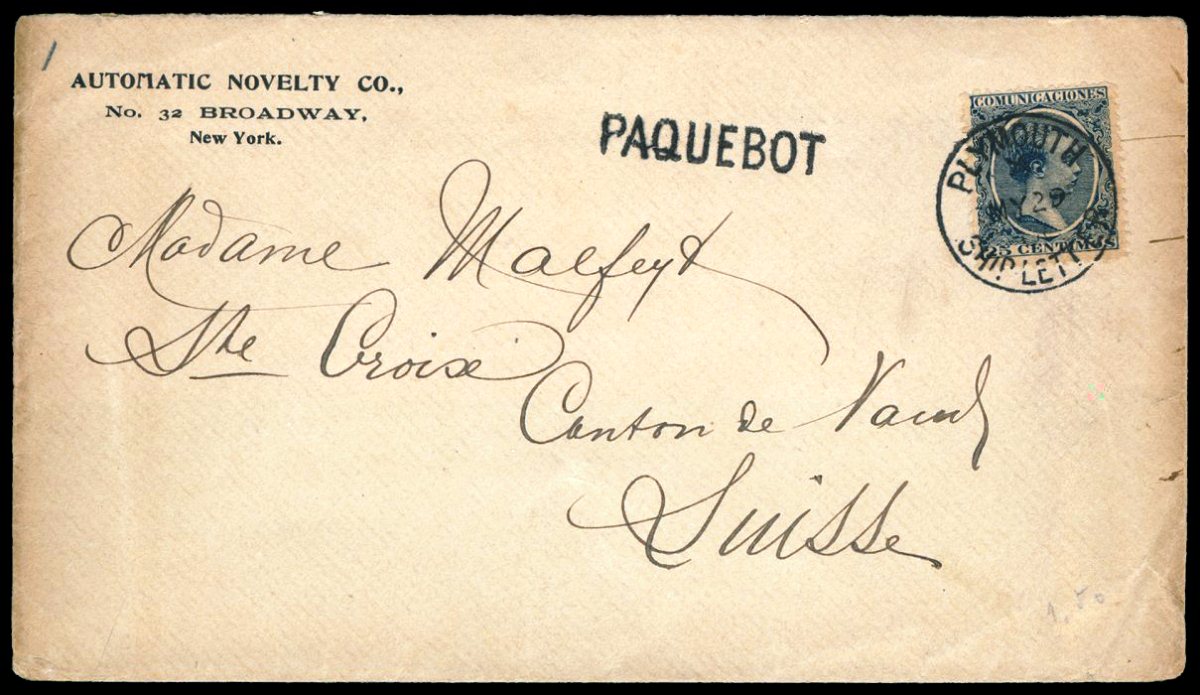 AUTOMATIC NOVELTY CO.,
No. 32 BROADWAY,
New York.
PAQUEBOT
COMUNICACIONES
PLYMOUTH
MY 29
SHIP LETTER
25 CENTIMOS
Madame Malfeyt
Ste Croix
Canton de Vaud
Suisse
1.50